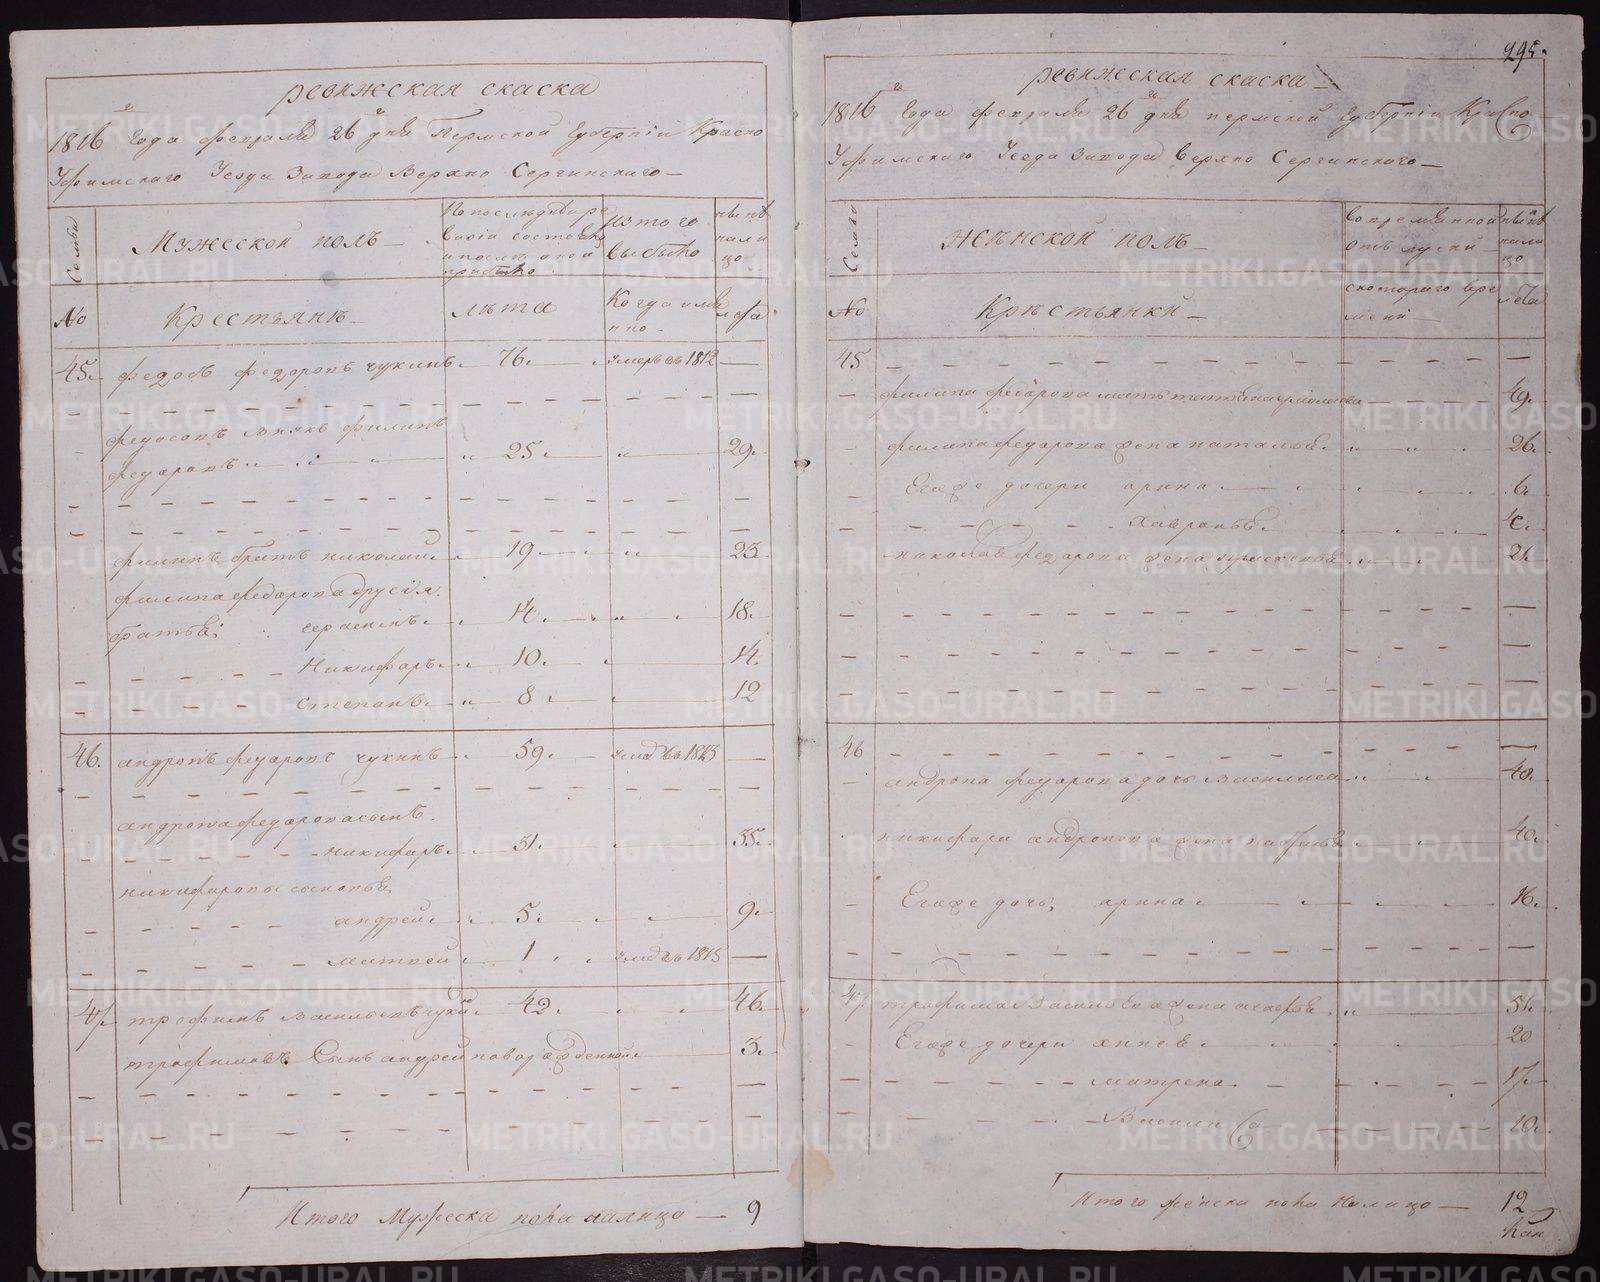 ревижская скаска
1816го года февраля 26й дня Пермской Губернiи Красно
Уфимскаго Уезда Завода Верхно Сергинскаго
Семьи
Мужеской полъ
По последней ре
визiи состояло
и после оной
прибыло
Из того
выбыло
ныне
нали
цо
No
Крестьянъ
лѣта
Когда имян
но
лета
45. федосъ федоровъ чукинъ 76. умеръ въ 1812
федосовъ внукъ филипъ
федаровъ 25 29.
филипъ братъ николай 19 23
филипа федарова другiя
братья; 14. 18.
Никифаръ 10. 14.
степанъ 8 12
46. андронъ федаровъ чукинъ 59. въ 1813
андрона федарова сынъ
никифаръ 31. 35.
никифаровы сыновья
андрей 5. 9.
матвей 1 въ 1815
47 трофимъ Васильевъ чукин 42 46.
трофимовъ Сынъ андрей новорожденной 3.
Итого Мужеска пола налицо 9
295.
ревижская скаска
1816го года февраля 26й дня пермской Губернiи Красно
Уфимскаго Уезда Завода Верхно Сергинскаго
Семьи
Женской полъ
во временной
отлучки
ныне
нали
цо
No
Крестьянки
с котораго вре
мени
лета
45
филипа федарова мать татьяна ермолаева 49.
филипа федарова жена наталья 26.
Егоже дочери арина 6.
хавронья 4.
николая федарова жена 21.
46
андрона федарова дочь Василиса 40.
никифара андронова жена 40.
Егоже дочь; арина 16.
47 трофима Васильева жена агафья 51.
Егоже дочери 20
матрена 17.
Василиса 10.
Итого женска пола налицо 12
METRIKI.GASO-URAL.RU